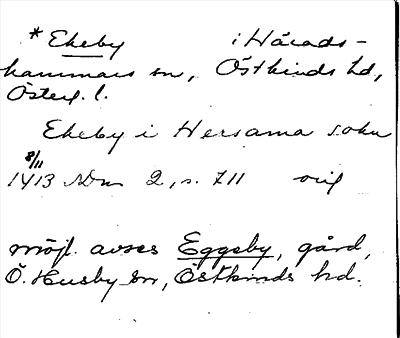 * Ekeby i Härads-
hammars sn, Östkinds hd,
Österg. l.
Ekeby i Hersama sokn
8/11
1413 SDns 2, s. 711 orig
möjl. avses Eggeby, gård,
Ö. Husby sn, Östkinds hd.